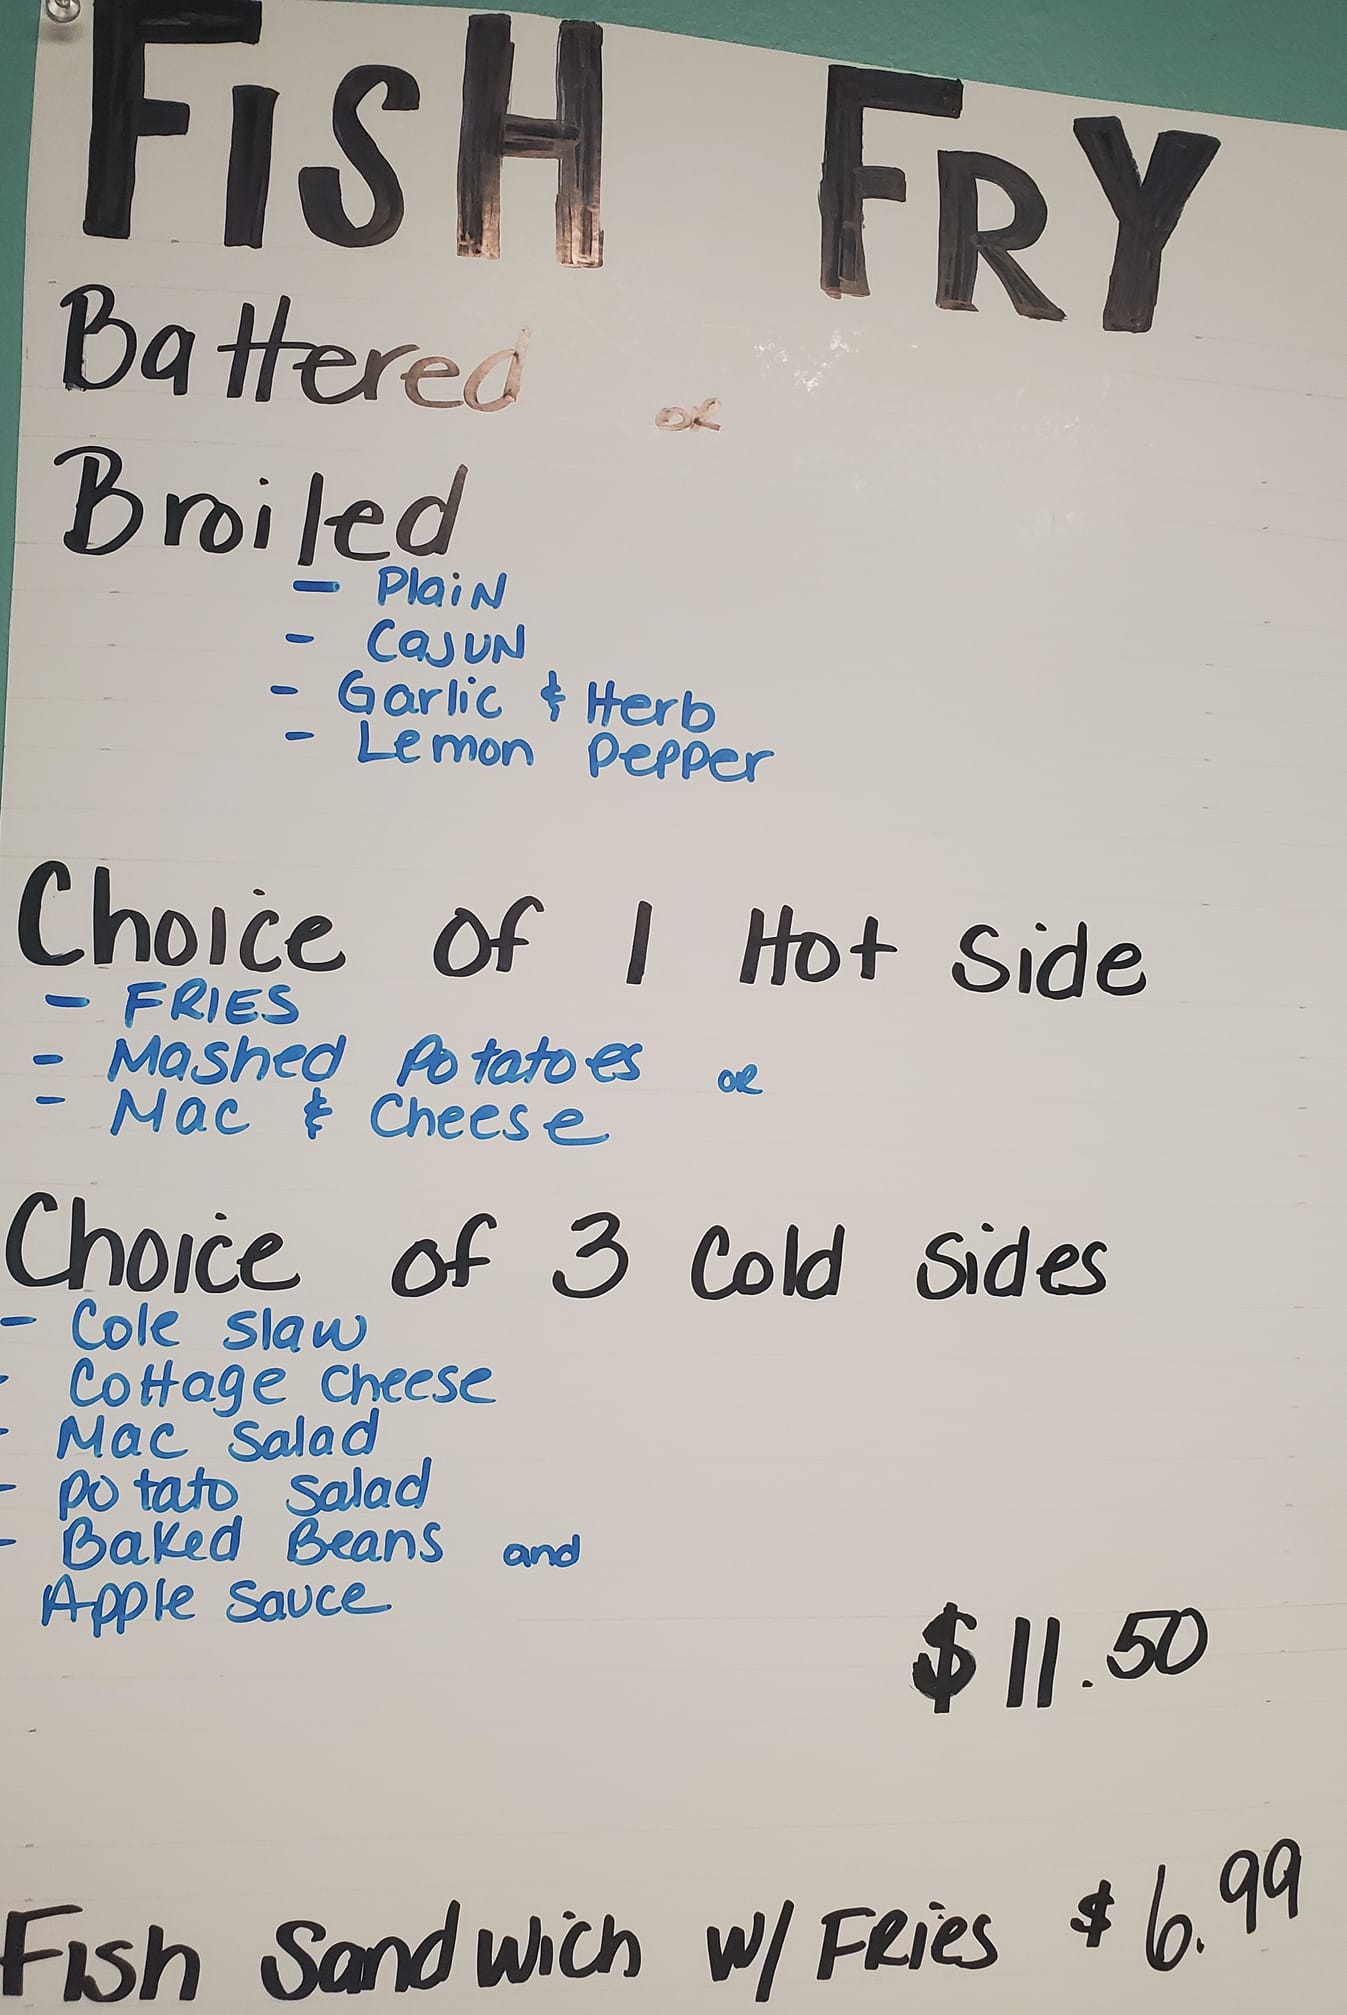 FISH FRY
Battered or
Broiled
- Plain
- Cajun
- Garlic & Herb
- Lemon Pepper
Choice of 1 Hot Side
- FRIES
- Mashed Potatoes or
- Mac & Cheese
Choice of 3 Cold Sides
- Cole Slaw
- Cottage Cheese
- Mac Salad
- Potato Salad
- Baked Beans and
Apple Sauce
$11.50
Fish Sandwich w/ Fries $6.99